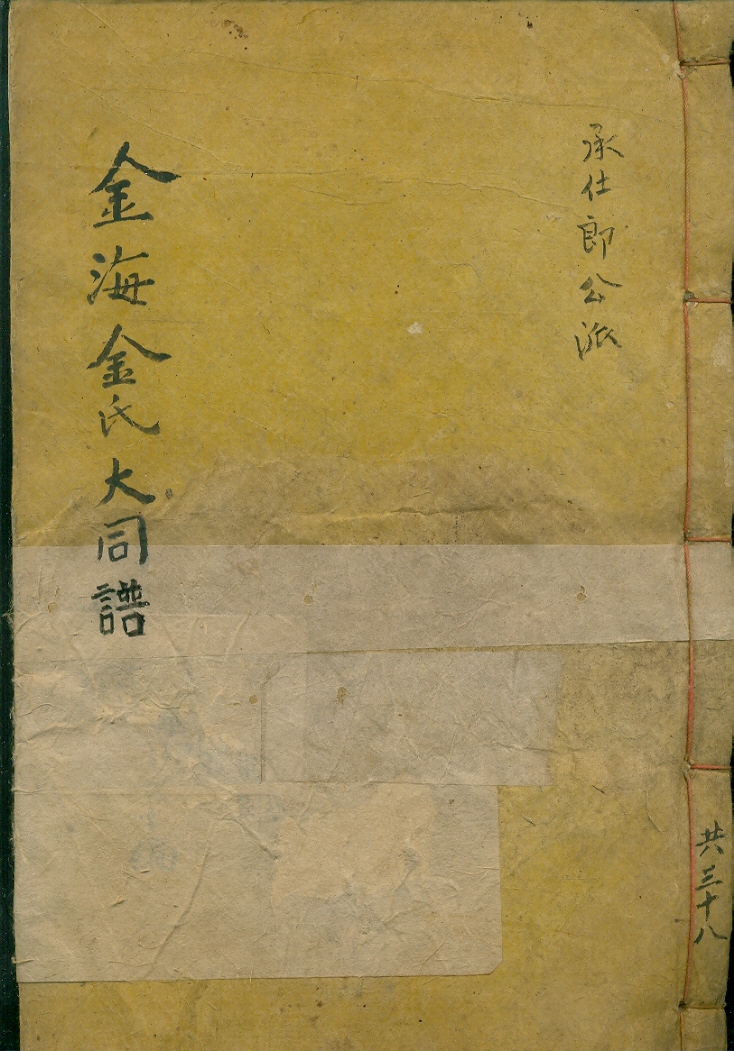 承仕郎公派
金海金氏大同譜
共三十八